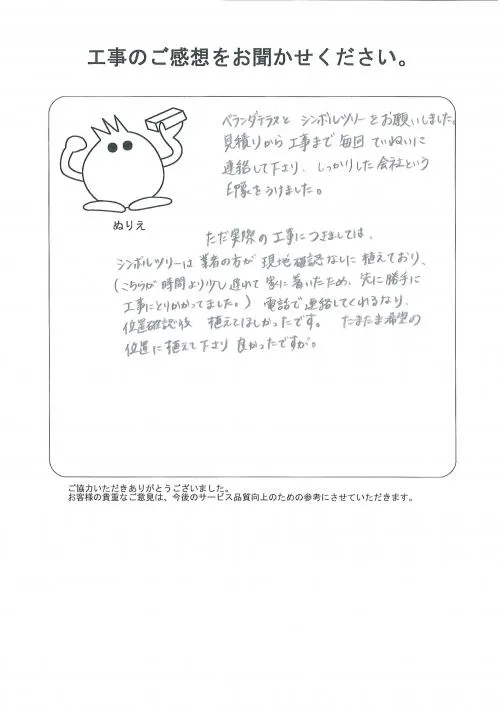 工事のご感想をお聞かせください。
ベランダテラスと シンボルツリーをお願いしました。
見積りから工事まで毎回ていねいに
連絡して下さり、しっかりした会社という
印象をうけました。
ぬりえ
ただ実際の工事につきましては、
シンボルツリーは業者の方が現地確認なしに植えており、
(こちらが時間より少し遅れて家に着いたため、先に勝手に
工事にとりかかってました。)電話で連絡してくれるなり、
位置確認後 植えてほしかったです。 たまたま希望の
位置に植えて下さり良かったですが。
ご協力いただきありがとうございました。
お客様の貴重なご意見は、今後のサービス品質向上のための参考にさせていただきます。